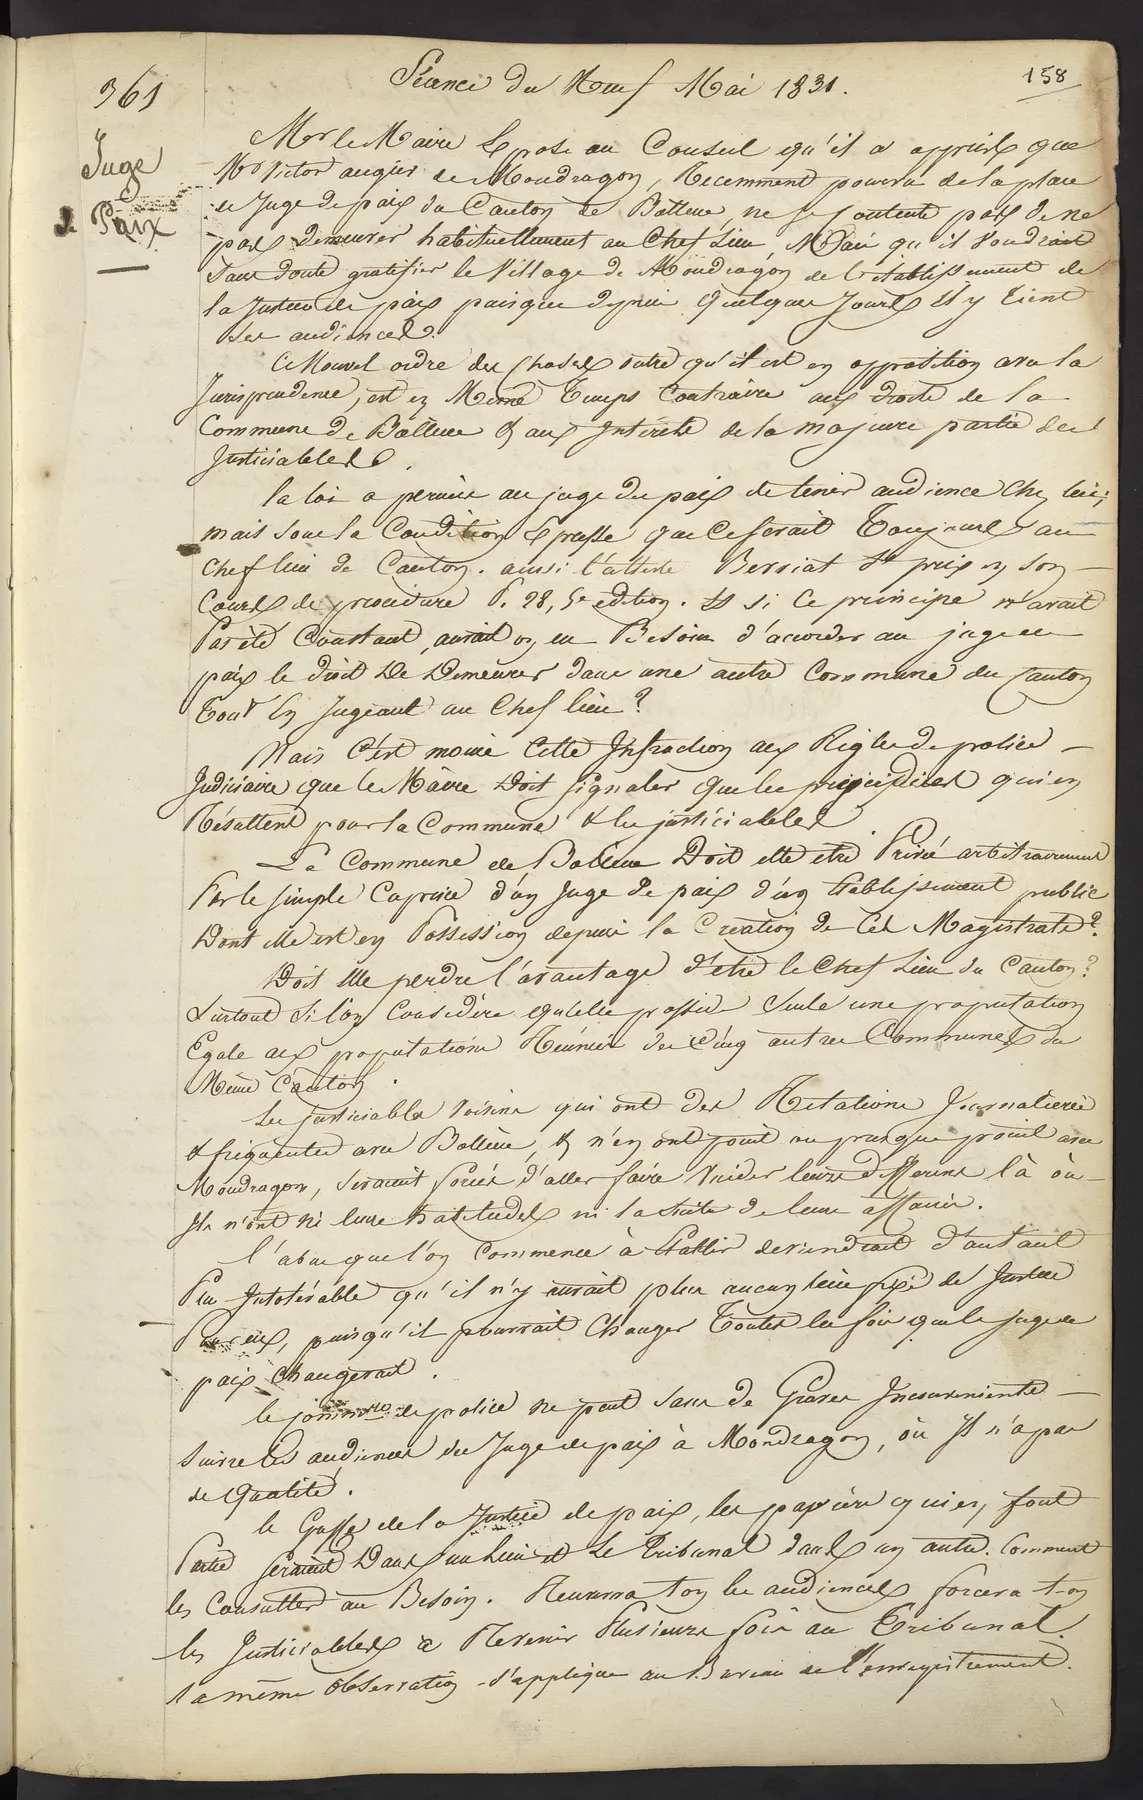 158
361
Séance du Neuf Mai 1831.
Juge
de Paix
Mor le Maire Expose au Conseil qu'il a appris que
Mr Victor augier de Moudragon, Recemment pourvu de la place
de Juge de paix du Canton de Bollene, ne se contente pas de ne
pas demeurer habituellement au Chef Lieu, Mais qu'il Voudrait
sans doute gratifier le Village de Moudragon de l'établissement de
la Justice de paix puisque depuis quelques Jours Il y tient
ses audiences.
Ce Nouvel ordre des choses outre qu'il est en opposition avec la
Jurisprudence, est en Même Temps Contraire aux droits de la
Commune de Bollène & aux Intérêts de la majeure partie des
Justiciables.
la loi a permis au juge de paix de tenir audience chez lui;
mais sous la Condition Expresse que ce serait Toujours au
chef lieu de Canton. aussi l'atteste Berriat St prix en son
Cours de procédure P. 28, 5e edition. Et si ce principe n'avait
Pas été Constant, aurait on eu Besoin d'accorder au juge de
paix le droit De Demeurer dans une autre Commune du Canton
Tout En Jugeant au Chef lieu?
Mais C'est moins Cette Infraction aux Règles de police
Judiciaire que le Maire Doit signaler que les préjudices qui en
Résultent pour la Commune & les justiciables.
La Commune de Bollène Doit elle etre Privée arbitrairement
Par le simple Caprice d'un Juge de paix d'un Etablissement public
Dont elle est en Possession depuis la Création de Ces Magistrats?
Doit Elle perdre l'avantage d'etre le Chef Lieu du Canton?
Surtout Si l'on Considère qu'elle possède Seule une population
Egale aux populations Réunies des Cinq autres Communes du
Même Canton.
Les justiciables voisins qui ont des Relations Journalières
& fréquentes avec Bollène, & n'en ont point ou presque point avec
Moudragon, seraient forcés d'aller faire Vuider leurs differens là où
Ils n'ont ni leurs habitudes ni la suite de leurs affaires.
l'abus que l'on Commence à Etablir deviendrait d'autant
Plus Intolérable qu'il n'y aurait plus aucun lieu fixé de Justice
Pour eux, puisqu'il pourrait Changer Toutes les fois que le juge de
paix changerait.
le commre de police ne peut sans de Graves Inconvenients
Suivre les audiences du Juge de paix à Mondragon, où Il n'a pas
de Qualité.
le Greffe de la Justice de paix, les papiers qui en, font
Partie seraient Dans un lieu et le Tribunal dans un autre. Comment
les Consulter au Besoin. Renverra t'on les audiences forcera t-on
les Justiciables à Revenir Plusieurs fois au Tribunal.
la même observation s'applique au Bureau de l'enregistrement.